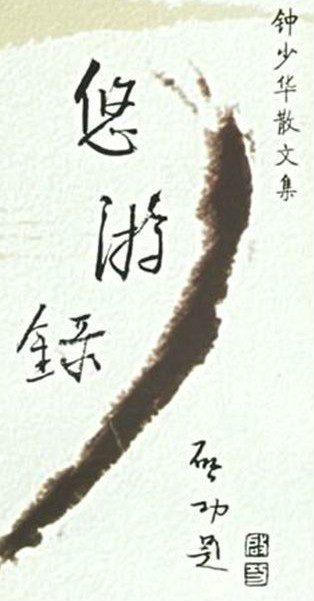 钟少华散文集
悠游录
启功题
启功